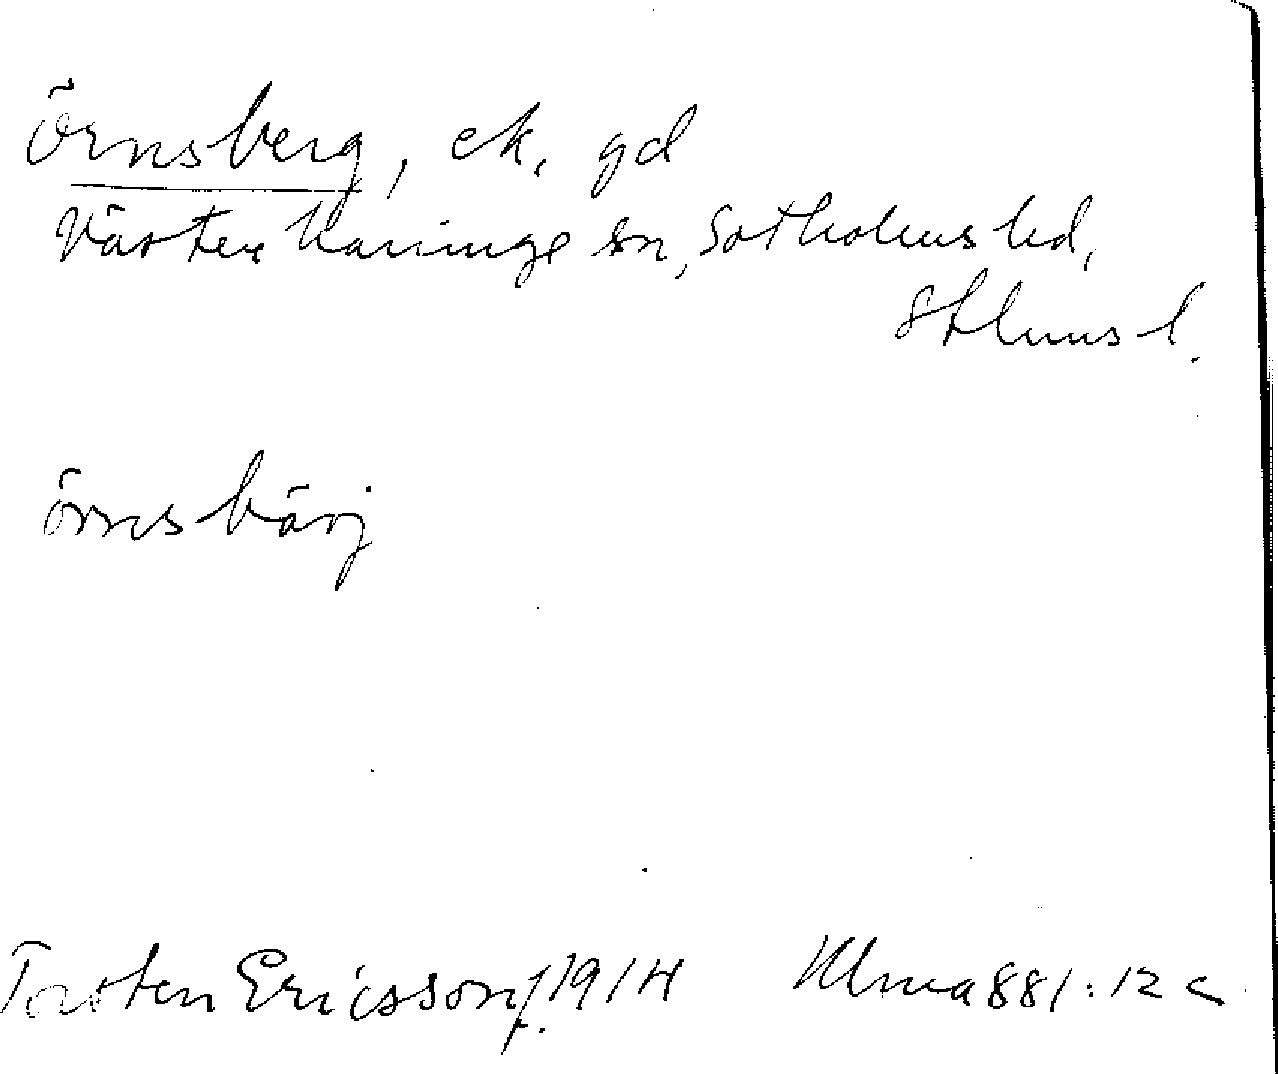 Örnsberg, ek. gd
Västerhaninge sn, Sotholms hd,
Sthlms l.
örnsbärj
Torsten Ericsson f. 1914 Ulma 881:12 c